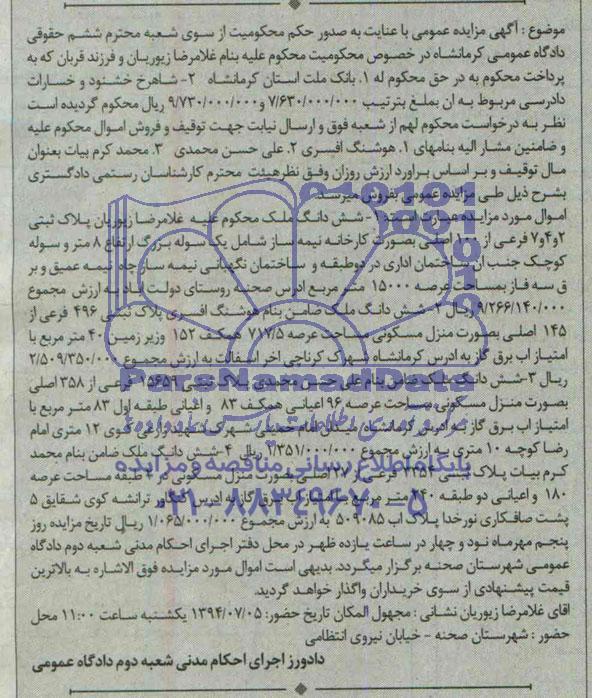 موضوع : آگهی مزایده عمومی با عنایت به صدور حکم محکومیت از سوی شعبه محترم ششم حقوقی
دادگاه عمومی کرمانشاه در خصوص محکومیت محکوم علیه بنام غلامرضا زیوریان و فرزند قربان که به
پرداخت محکوم به در حق محکوم له ۱. بانک ملت استان کرمانشاه ۲- شاهرخ خشنود و خسارات
دادرسی مربوط به ان بملغ بترتیب ۷/۶۳۰/۰۰۰/۰۰۰ و ۹/۷۳۰/۰۰۰/۰۰۰ ریال محکوم گردیده است
نظر به درخواست محکوم لهم از شعبه فوق و ارسال نیابت جهت توقیف و فروش اموال محکوم علیه
و ضامنین مشار الیه بنامهای ۱. هوشنگ افسری ۲. علی حسن محمدی ۳. محمد کرم بیات بعنوان
مال توقیف و بر اساس براورد ارزش روزان وفق نظرهیئت محترم کارشناسان رستمی دادگستری
بشرح ذیل طی مزایده عمومی بفروش میرسد.
اموال مورد مزایده عبارت است: ۱- شش دانگ ملک محکوم علیه غلامرضا زیوریان پلاک ثبتی
۲و۴و۷ فرعی از اصلی بصورت کارخانه نیمه ساز شامل یک سوله بزرگ ارتفاع ۸ متر و سوله
کوچک جنب ان ساختمان اداری در دوطبقه و ساختمان نگهبانی نیمه ساز چاه نیمه عمیق و بر
ق سه فاز بمساحت عرصه ۱۵۰۰۰ متر مربع ادرس صحنه روستای دولت اباد به ارزش مجموع
۹/۲۶۶/۱۴۰/۰۰۰ ریال ۲- شش دانگ ملک ضامن بنام هوشنگ افسری پلاک ثبتی ۴۹۶ فرعی از
۱۴۵ اصلی بصورت منزل مسکونی مساحت عرصه ۷۱۷/۵ همکف ۱۵۲ وزیر زمین ۴۰ متر مربع با
امتیاز اب برق گاز به ادرس کرمانشاه شهرک کرناچی اخر اسفالت به ارزش مجموع ۲/۵۰۹/۳۵۰/۰۰۰
ریال ۳-شش دانگ ملک ضامن بنام علی حسن محمدی پلاک ثبتی ۱۵۶۵۹ فرعی از ۳۵۸ اصلی
بصورت منزل مسکونی مساحت عرصه ۹۶ اعیانی همکف ۸۳ و اعیانی طبقه اول ۸۳ متر مربع با
امتیاز اب برق گاز به ادرس کرمانشاه میدان امام خمینی شهرک شهید کوی ۱۲ متری امام
رضا کوچه ۱۰ متری به ارزش مجموع ۲/۳۵۱/۰۰۰/۰۰۰ ریال ۴-شش دانگ ملک ضامن بنام محمد
کرم بیات پلاک ثبتی فرعی از اصلی بصورت منزل مسکونی در ۲ طبقه مساحت عرصه
۱۸۰ و اعیانی دو طبقه ۲۴۰ متر مربع با امتیاز اب برق گاز به ادرس ترانشه کوی شقایق ۵
پشت صافکاری نورخدا پلاک اب ۵۰۹۰۸۵ به ارزش مجموع ۱/۰۶۵/۰۰۰/۰۰۰ ریال تاریخ مزایده روز
پنجم مهرماه نود و چهار در ساعت یازده ظهر در محل دفتر اجرای احکام مدنی شعبه دوم دادگاه
عمومی شهرستان صحنه برگزار میگردد. بدیهی است اموال مورد مزایده فوق الاشاره به بالاترین
قیمت پیشنهادی از سوی خریداران واگذار خواهد گردید.
اقای غلامرضا زیوریان نشانی : مجهول المکان تاریخ حضور: ۱۳۹۴/۰۷/۰۵ یکشنبه ساعت ۱۱:۰۰ محل
حضور : شهرستان صحنه - خیابان نیروی انتظامی
دادورز اجرای احکام مدنی شعبه دوم دادگاه عمومی
ParsNamadData
پایگاه اطلاع رسانی مناقصه و مزایده
۰۲۱-۸۸۳۴۹۶۷۰-۵